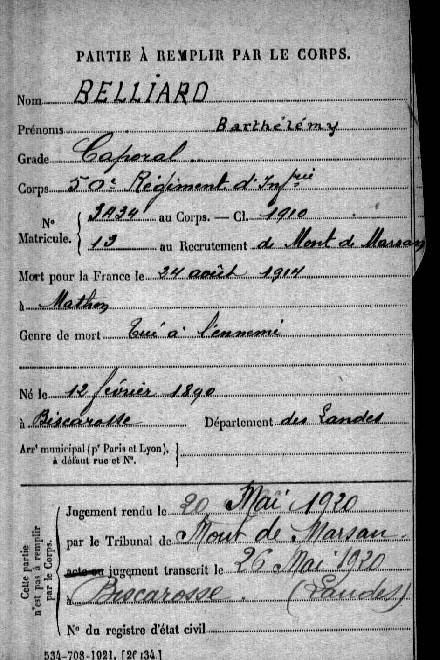 PARTIE À REMPLIR PAR LE CORPS.
Nom BELLIARD
Prénoms Barthélémy
Grade Caporal
Corps 50e Régiment d'Infrie
N° Matricule. { 3434 au Corps. — Cl. 1910
13 au Recrutement de Mont de Marsan
Mort pour la France le 24 août 1914
à Mathon
Genre de mort Tué à l'ennemi
Né le 12 février 1890
à Biscarosse Département des Landes
Arrt municipal (pr Paris et Lyon),
à défaut rue et N°.
Cette partie n'est pas à remplir par le Corps.
Jugement rendu le 20 Mai 1920
par le Tribunal de Mont de Marsan
acte ou jugement transcrit le 26 Mai 1920
à Biscarosse (Landes)
N° du registre d'état civil
534-708-1921. [26134]